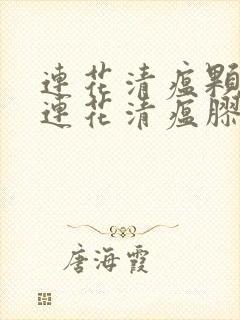 連花清瘟顆
連花清瘟膠
唐海霞